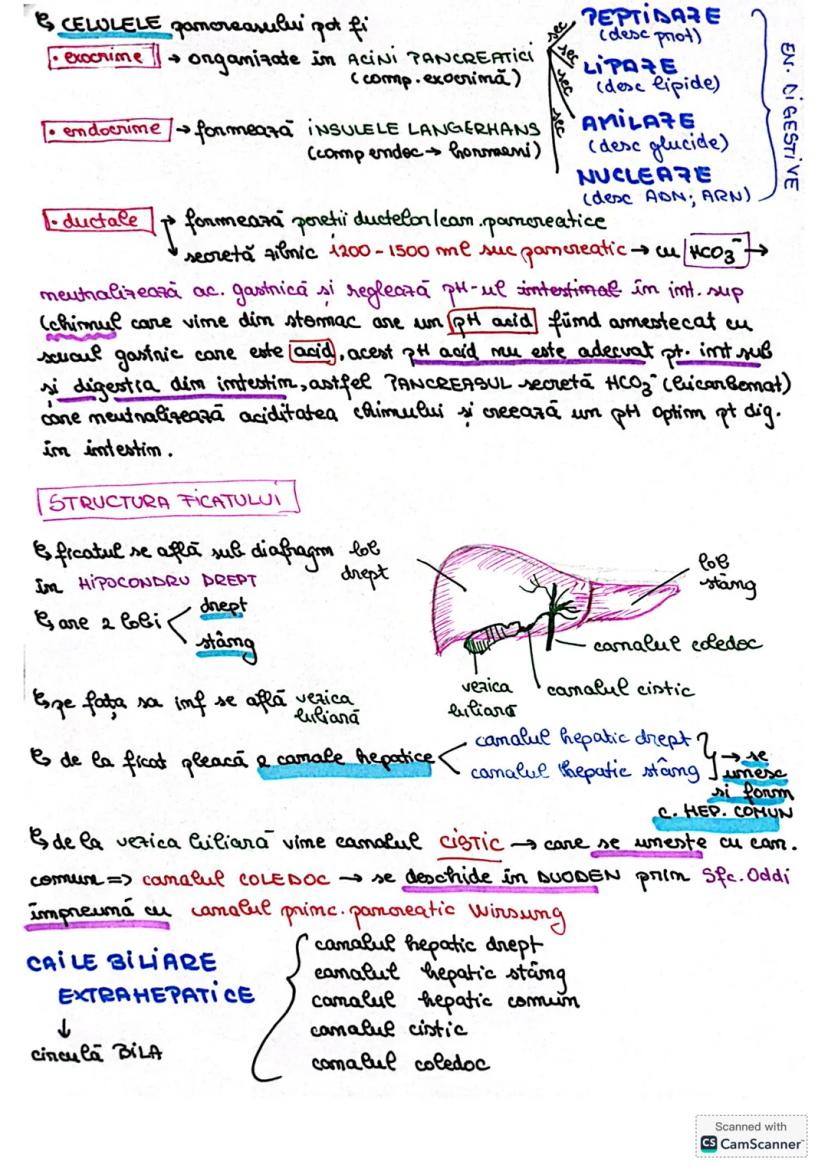 ↳ CELULELE pancreasului pot fi
• exocrine → organizate în ACINI PANCREATICI
(comp. exocrină)
sec PEPTIDAZE
(desc prot)
sec LIPAZE
(desc lipide)
sec AMILAZE
(desc glucide)
sec NUCLEAZE
(desc ADN; ARN)
EN. DIGESTIVE
• endocrine → formează INSULELE LANGERHANS
(comp endoc → hormoni)
• ductale → formează pereții ductelor/can. pancreatice
↓ secretă zilnic 1200 - 1500 ml suc pancreatic → cu HCO3⁻ →
neutralizează ac. gastrică și reglează pH-ul intestinal în int. sup
(chimul care vine din stomac are un pH acid fiind amestecat cu
sucul gastric care este acid, acest pH acid nu este adecvat pt. int sub
și digestia din intestin, astfel PANCREASUL secretă HCO3⁻ (bicarbonat)
care neutralizează aciditatea chimului și creează un pH optim pt dig.
în intestin.
STRUCTURA FICATULUI
↳ ficatul se află sub diafragm
în HIPOCONDRU DREPT
↳ are 2 lobi < drept
stâng
lob
drept
lob
stâng
canalul coledoc
canalul cistic
vezica
biliară
↳ pe fața sa inf se află vezica
biliară
↳ de la ficat pleacă 2 canale hepatice < canalul hepatic drept
canalul hepatic stâng
→ se
unesc
si form
C. HEP. COMUN
↳ de la vezica biliară vine canalul CISTIC → care se unește cu can.
comun => canalul COLEDOC → se deschide în DUODEN prin Sfc. Oddi
împreună cu canalul princ. pancreatic Wirsung
CAILE BILIARE
EXTRAHEPATICE
↓
circulă BILA
canalul hepatic drept
canalul hepatic stâng
canalul hepatic comun
canalul cistic
canalul coledoc
Scanned with
CS CamScanner